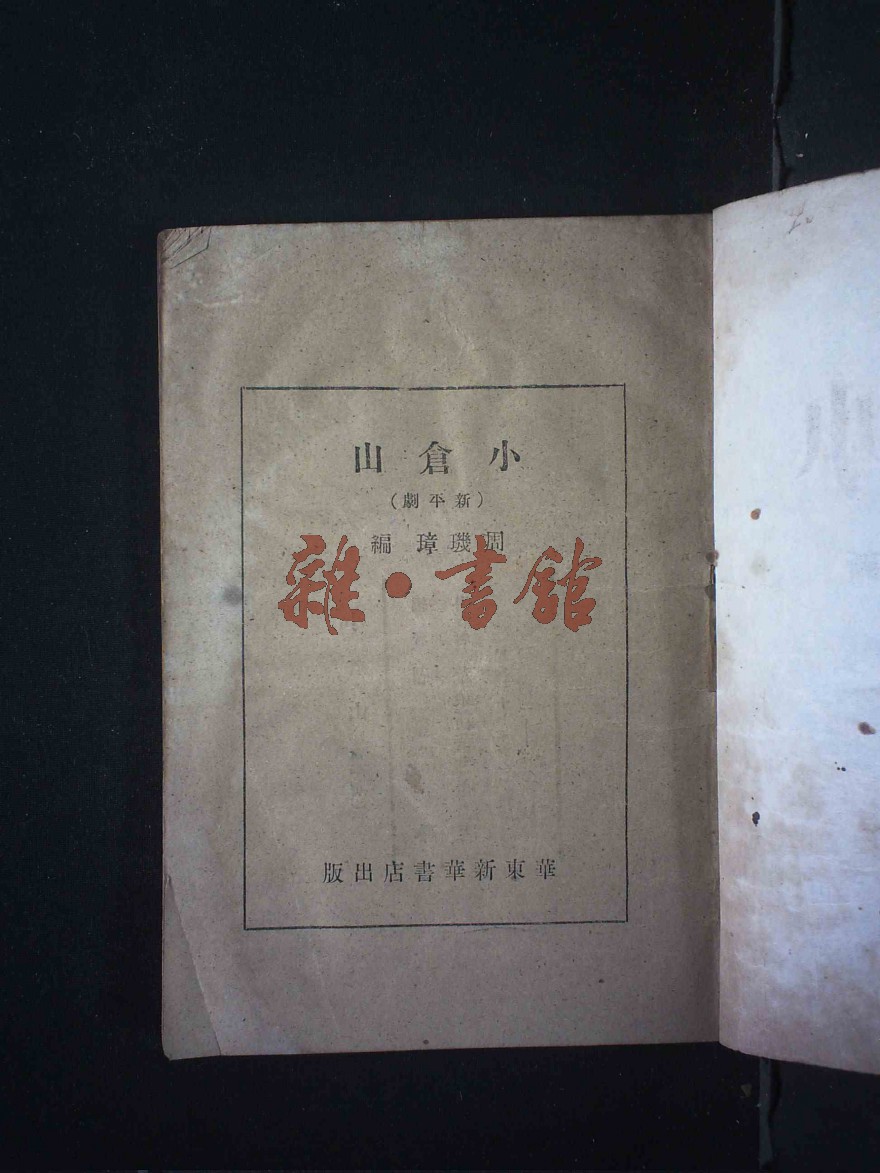 小倉山
（新平劇）
周璣璋 編
雜·書館
華東新華書店出版